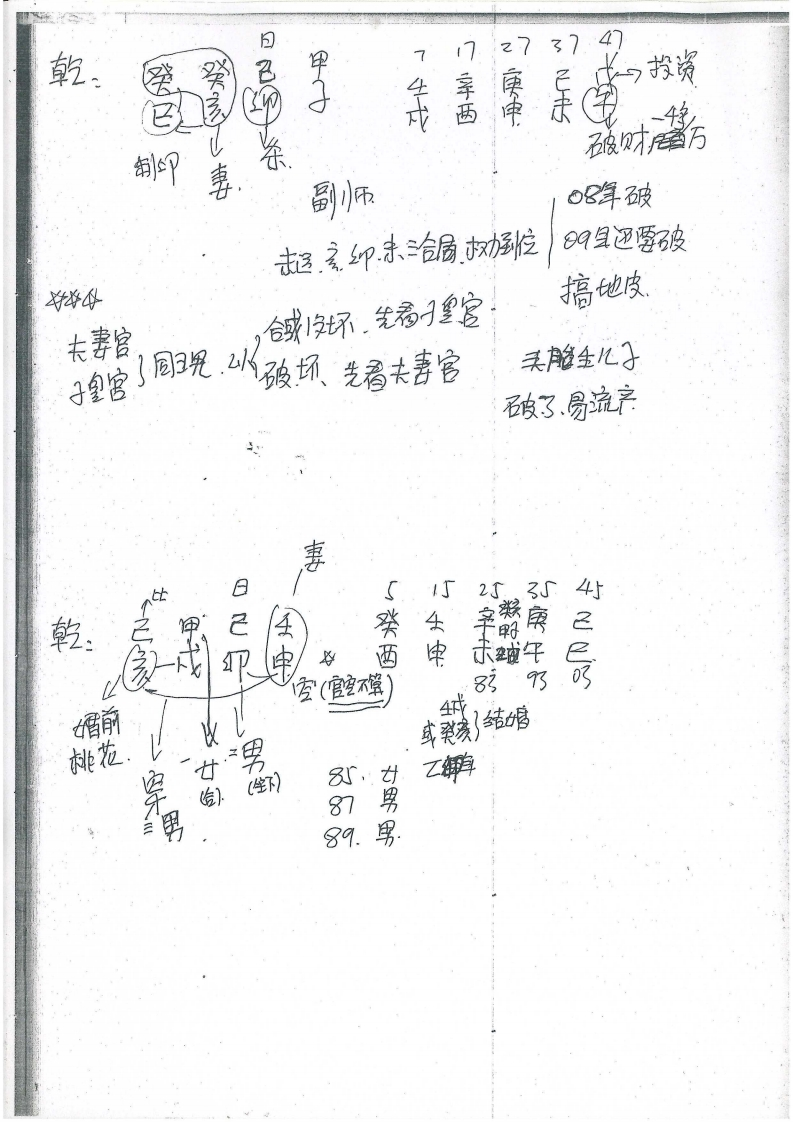 日
7 17 27 37 47
乾: 癸 癸 己 甲 壬 辛 庚 己 戊→投资
巳 亥 卯 子 戌 酉 申 未 午
制印 妻. 杀. 破财 万
副师
08年破
未运.亥.卯.未三合局.权力到位
09年还要破
搞地皮.
☆☆☆
夫妻宫
子息宫
同现
合或没坏、先看子息宫
破坏、先看夫妻宫
头胎生儿子
破了.易流产
妻
比 日
5 15 25 35 45
乾: 己 甲 己 壬 癸 壬 辛 庚 己
亥 戌 卯 申 酉 申 未 午 巳
83 93 03
空(官空不算)
婚前
桃花.
穿
三男
一女
(合)
二男
(坐下)
壬戌
或癸亥 结婚
85. 女
87 男
89. 男.